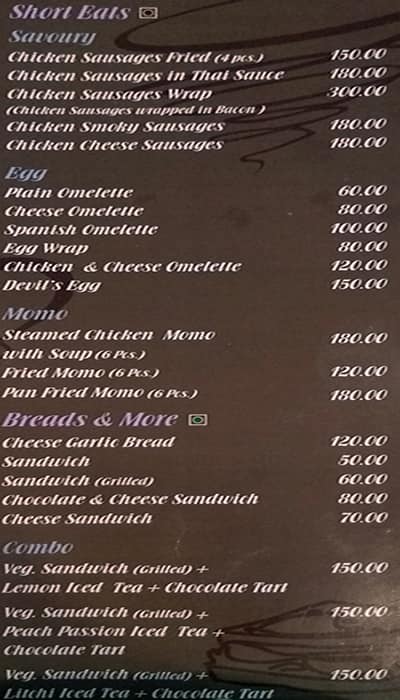 Short Eats
Savoury
Chicken Sausages Fried (4 pcs.) 150.00
Chicken Sausages in Thai Sauce 180.00
Chicken Sausages Wrap 300.00
(Chicken Sausages wrapped in Bacon )
Chicken Smoky Sausages 180.00
Chicken Cheese Sausages 180.00
Egg
Plain Omelette 60.00
Cheese Omelette 80.00
Spanish Omelette 100.00
Egg Wrap 80.00
Chicken & Cheese Omelette 120.00
Devil's Egg 150.00
Momo
Steamed Chicken Momo 180.00
with Soup (6 Pcs.)
Fried Momo (6 Pcs.) 120.00
Pan Fried Momo (6 Pcs.) 180.00
Breads & More
Cheese Garlic Bread 120.00
Sandwich 50.00
Sandwich (Grilled) 60.00
Chocolate & Cheese Sandwich 80.00
Cheese Sandwich 70.00
Combo
Veg. Sandwich (Grilled) + 150.00
Lemon Iced Tea + Chocolate Tart
Veg. Sandwich (Grilled) + 150.00
Peach Passion Iced Tea +
Chocolate Tart
Veg. Sandwich (Grilled) + 150.00
Litchi Iced Tea + Chocolate Tart